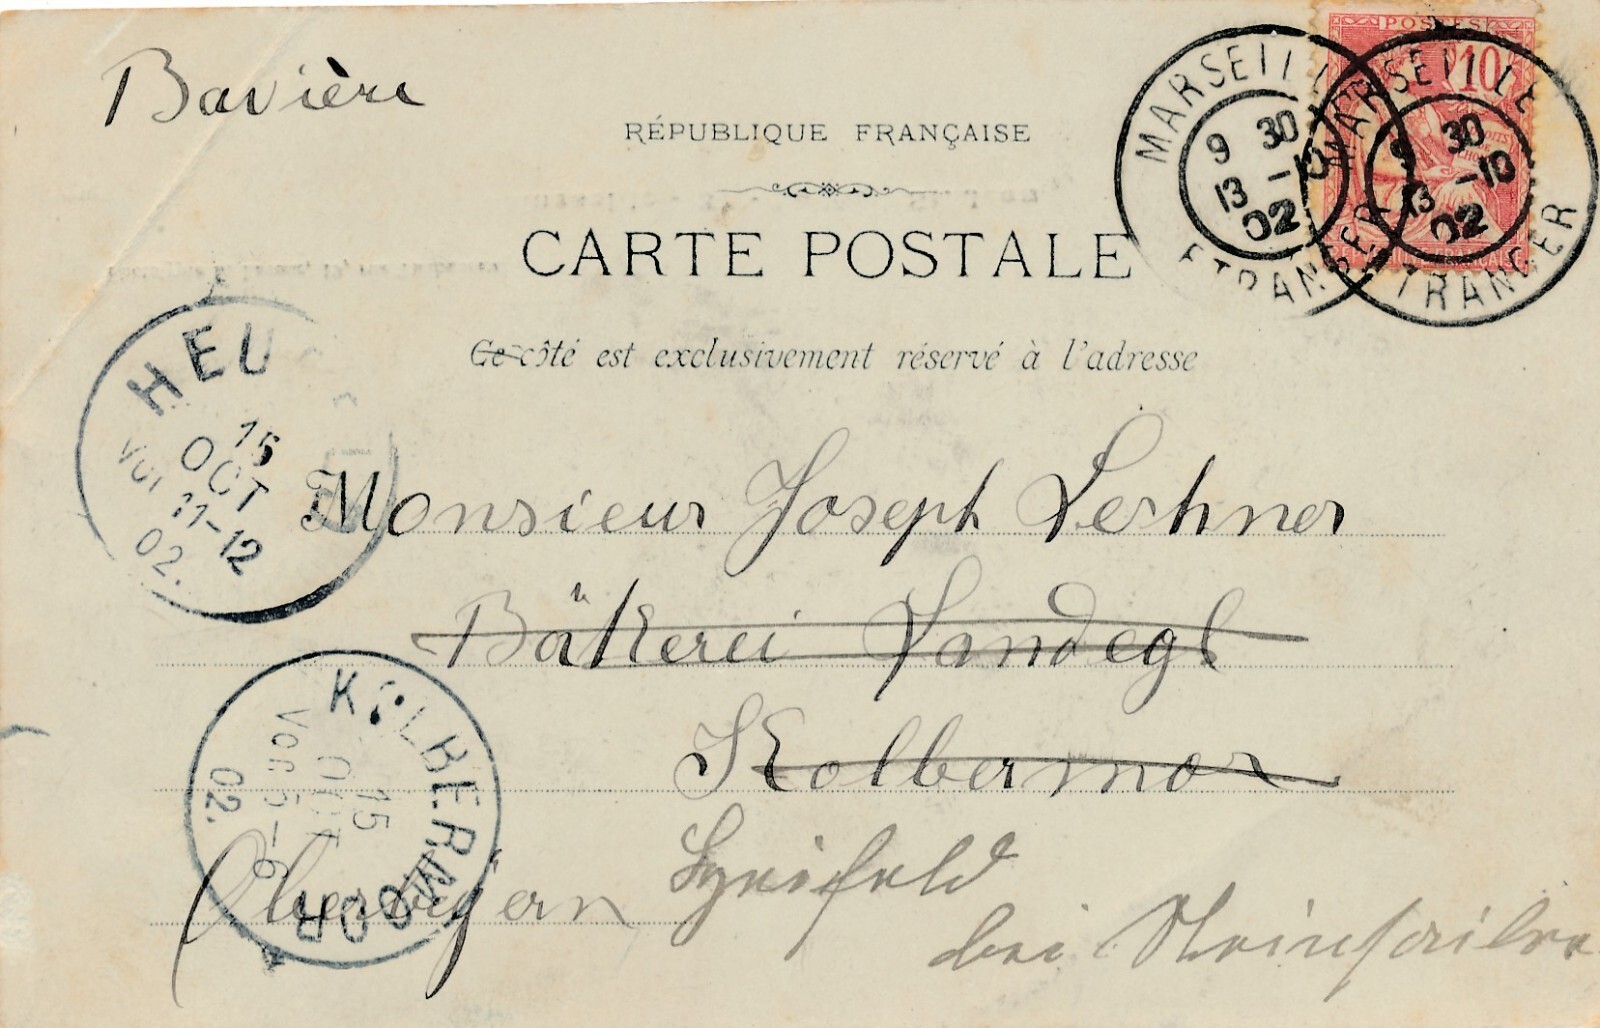 Bavière
RÉPUBLIQUE FRANÇAISE
CARTE POSTALE
Ce côté est exclusivement réservé à l'adresse
POSTES
10
MARSEILLE
9 30
13 -10
02
ETRANGER
MARSEILLE
9 30
13 -10
02
ETRANGER
HEU
15
OCT
Vor 11-12
02.
Monsieur Joseph Lechner
Bäkerei Landegl
Kolbermor
KOLBERMOOR
15
OCT
Vor 5-6
02.
Oberbyern
bei